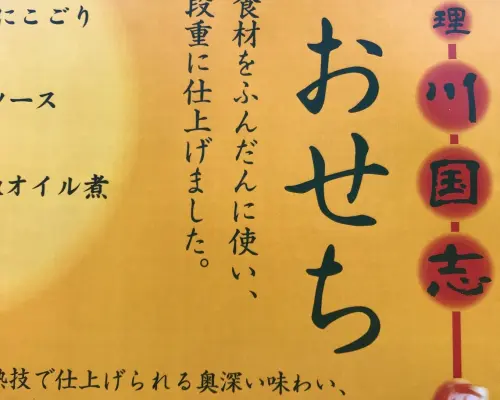 理川国志
おせち
食材をふんだんに使い、
段重に仕上げました。
にこごり
ソース
オイル煮
技で仕上げられる奥深い味わい、